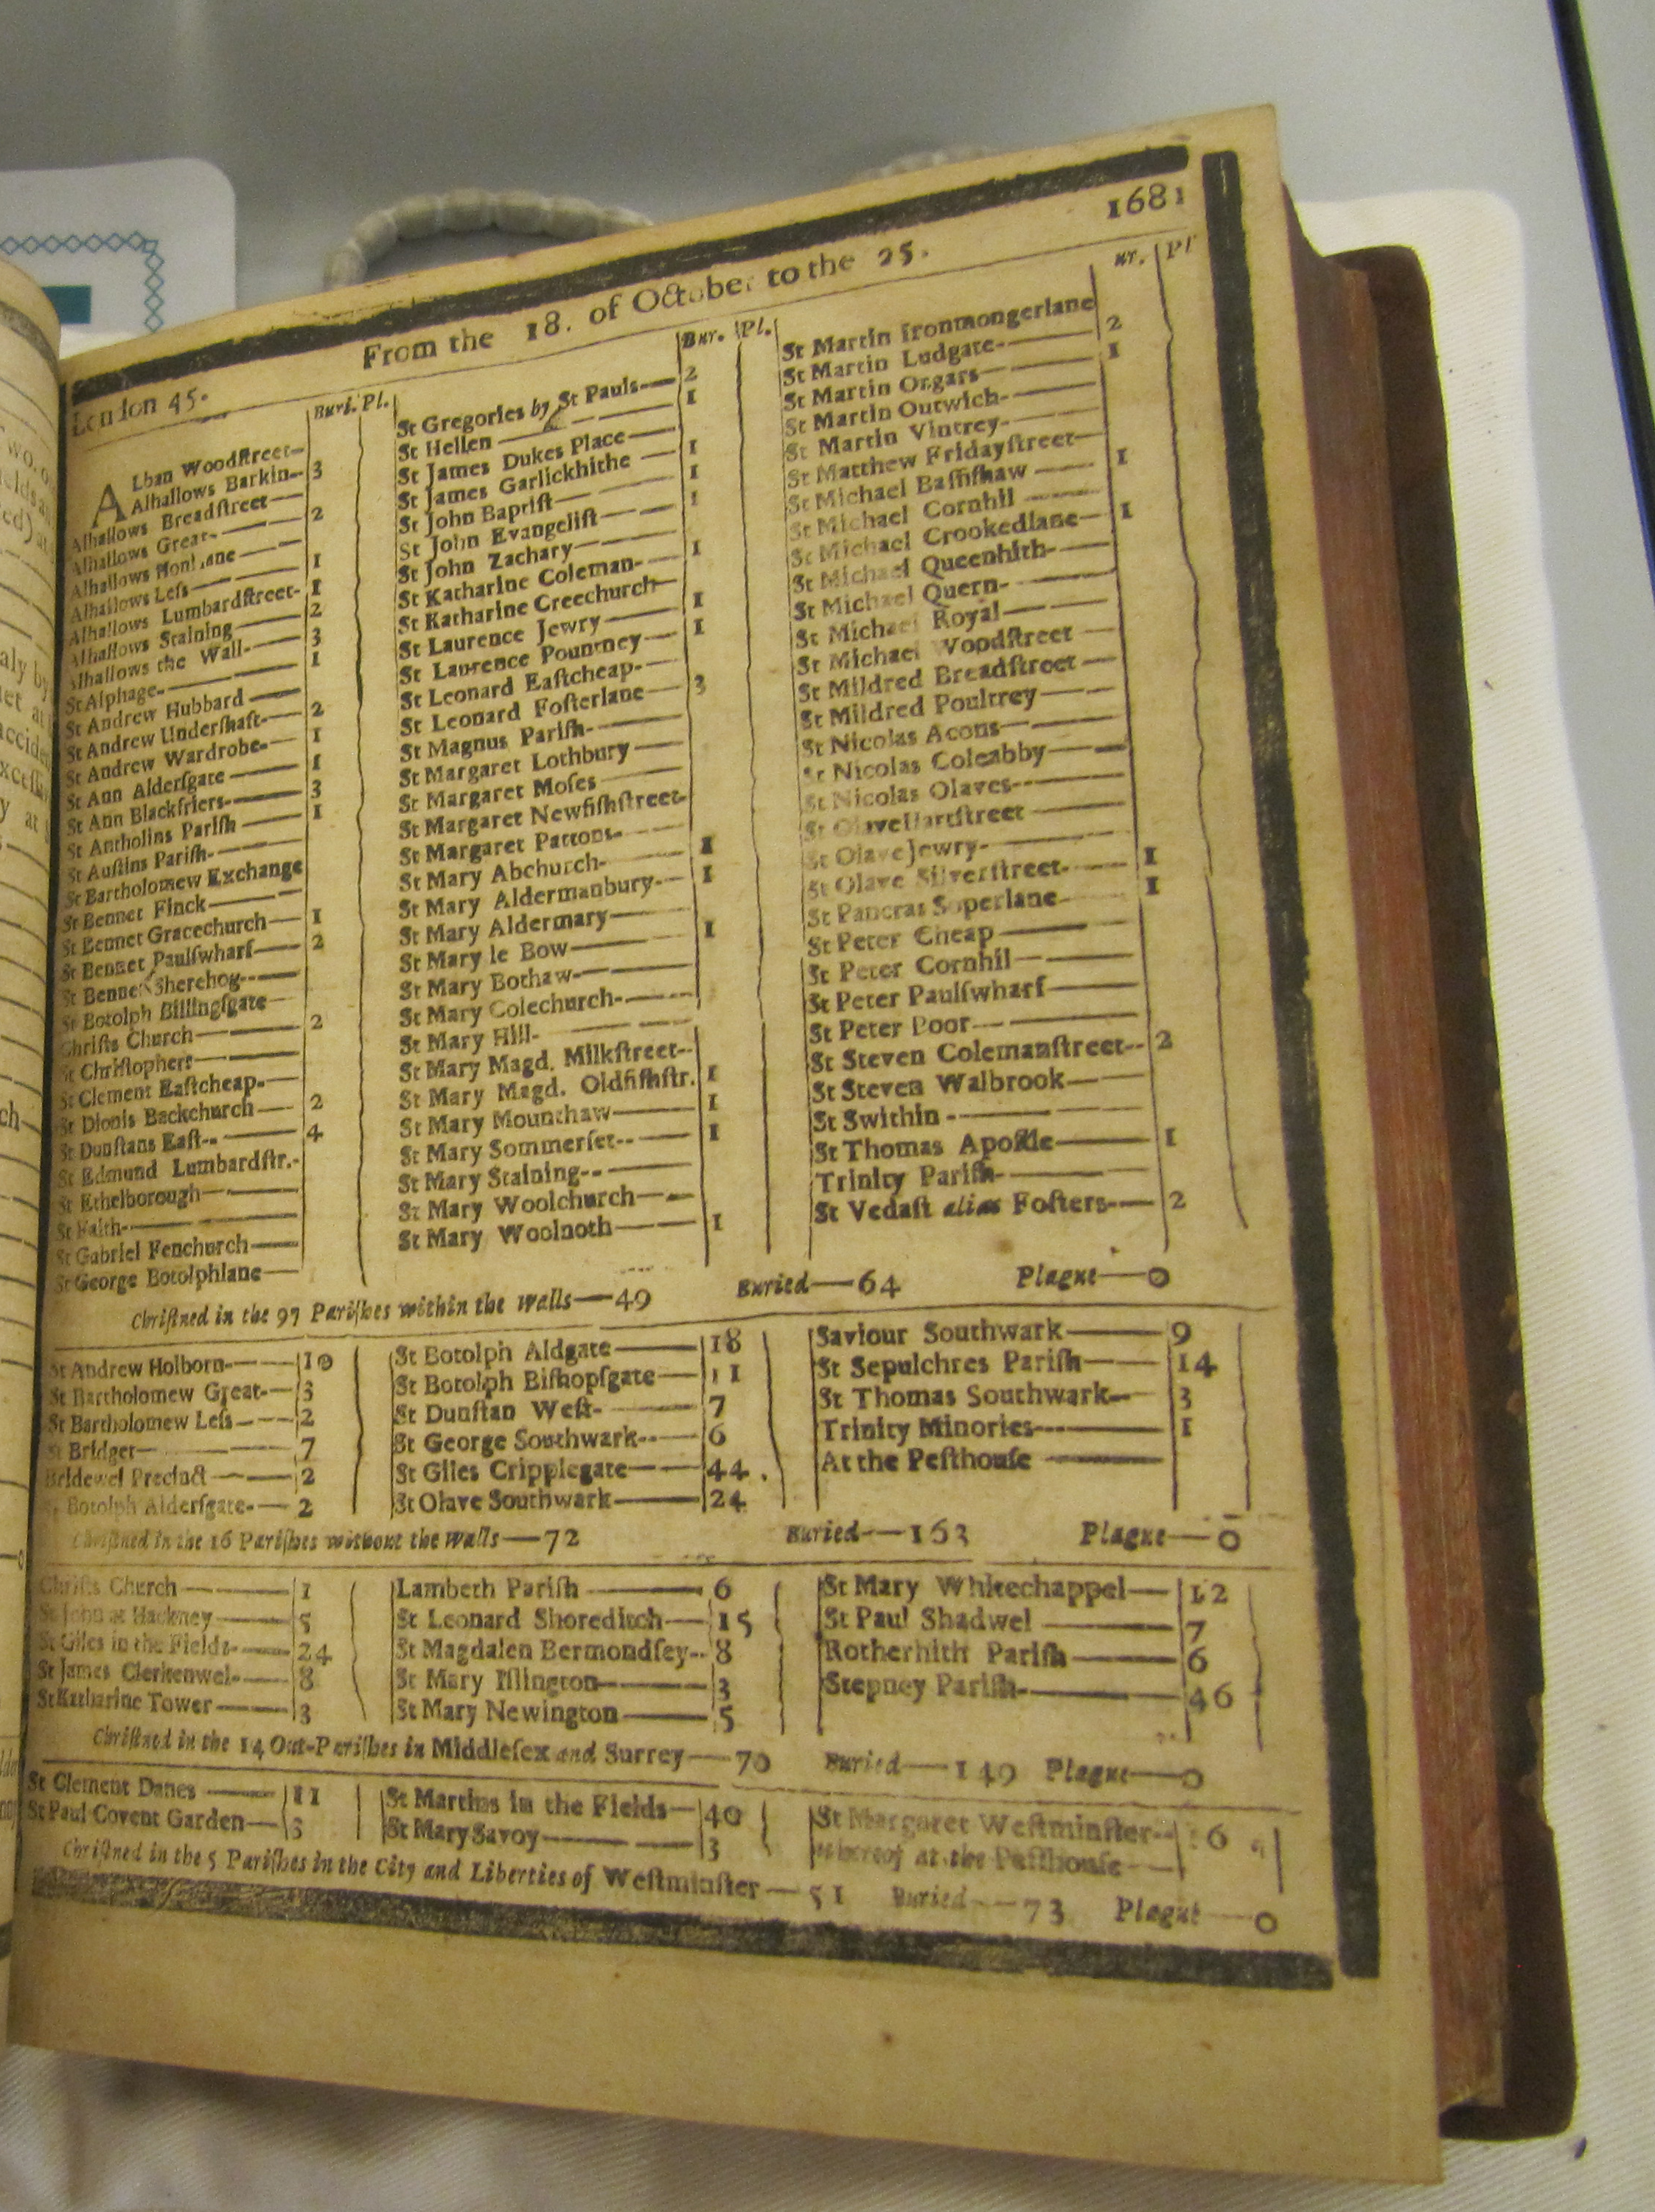 1681
From the 18. of October to the 25.
London 45.
Buri. Pl.
ALban Woodſtreet—
Alhallows Barkin— 3
Alhallows Breadſtreet—
Alhallows Great— 2
Alhallows Honilane—
Alhallows Leſs— 1
Alhallows Lumbardſtreet- 1
Alhallows Staining— 2
Alhallows the Wall— 3
St Alphage— 1
St Andrew Hubbard—
St Andrew Underſhaft— 2
St Andrew Wardrobe— 1
St Ann Alderſgate— 1
St Ann Blackfriers— 3
St Antholins Pariſh— 1
St Auſtins Pariſh—
St Bartholomew Exchange
St Bennet Finck—
St Bennet Gracechurch— 1
St Bennet Paulſwharf— 2
St Bennet Sherehog—
St Botolph Billingſgate—
Chriſts Church— 2
St Chriſtophers—
St Clement Eaſtcheap—
St Dionis Backchurch— 2
St Dunſtans Eaſt— 4
St Edmund Lumbardſtr.-
St Ethelborough—
St Faith—
St Gabriel Fenchurch—
St George Botolphlane—
Bur. Pl.
St Gregories by St Pauls— 2
St Hellen— 1
St James Dukes Place—
St James Garlickhithe— 1
St John Baptiſt— 1
St John Evangeliſt— 1
St John Zachary—
St Katharine Coleman— 1
St Katharine Creechurch—
St Laurence Jewry— 1
St Lawrence Pountney— 1
St Leonard Eaſtcheap—
St Leonard Foſterlane— 3
St Magnus Pariſh—
St Margaret Lothbury—
St Margaret Moſes—
St Margaret Newfiſhſtreet-
St Margaret Pattons—
St Mary Abchurch— 1
St Mary Aldermanbury— 1
St Mary Aldermary—
St Mary le Bow— 1
St Mary Bothaw—
St Mary Colechurch—
St Mary Hill—
St Mary Magd. Milkſtreet—
St Mary Magd. Oldfiſhſtr. 1
St Mary Mounthaw— 1
St Mary Sommerſet— 1
St Mary Staining—
St Mary Woolchurch—
St Mary Woolnoth— 1
ur. Pl
St Martin Ironmongerlane
St Martin Ludgate— 2
St Martin Orgars— 1
St Martin Outwich—
St Martin Vintrey—
St Matthew Fridayſtreet—
St Michael Baſſiſhaw— 1
St Michael Cornhil—
St Michael Crookedlane— 1
St Michael Queenhith—
St Michael Quern—
St Michael Royal—
St Michael Woodſtreet—
St Mildred Breadſtreet—
St Mildred Poultrey—
St Nicolas Acons—
St Nicolas Coleabby—
St Nicolas Olaves—
St Olave Hartſtreet—
St Olave Jewry—
St Olave Silverſtreet— 1
St Pancras Soperlane— 1
St Peter Cheap—
St Peter Cornhil—
St Peter Paulſwharf—
St Peter Poor—
St Steven Colemanſtreet— 2
St Steven Walbrook—
St Swithin—
St Thomas Apoſtle— 1
Trinity Pariſh—
St Vedaſt alias Foſters— 2
Chriſtned in the 97 Pariſhes within the walls—49 Buried—64 Plague—0
St Andrew Holborn— 10
St Bartholomew Great— 3
St Bartholomew Leſs— 2
St Bridget— 7
Bridewel Precinct— 2
St Botolph Alderſgate— 2
St Botolph Aldgate— 18
St Botolph Biſhopſgate— 11
St Dunſtan Weſt— 7
St George Southwark— 6
St Giles Cripplegate— 44
St Olave Southwark— 24
Saviour Southwark— 9
St Sepulchres Pariſh— 14
St Thomas Southwark— 3
Trinity Minories— 1
At the Peſthouſe—
Chriſtned in the 16 Pariſhes without the walls—72 Buried—163 Plague—0
Chriſts Church— 1
St John at Hackney— 5
St Giles in the Fields— 24
St James Clerkenwel— 8
St Katharine Tower— 3
Lambeth Pariſh— 6
St Leonard Shoreditch— 15
St Magdalen Bermondſey— 8
St Mary Iſlington— 3
St Mary Newington— 5
St Mary Whitechappel— 12
St Paul Shadwel— 7
Rotherhith Pariſh— 6
Stepney Pariſh— 46
Chriſtned in the 14 Out-Pariſhes in Middleſex and Surrey—70 Buried—149 Plague—0
St Clement Danes— 11
St Paul Covent Garden— 3
St Martins in the Fields— 40
St Mary Savoy— 3
St Margaret Weſtminſter— 16
whereof at the Peſthouſe—
Chriſtned in the 5 Pariſhes in the City and Liberties of Weſtminſter—51 Buried—73 Plague—0